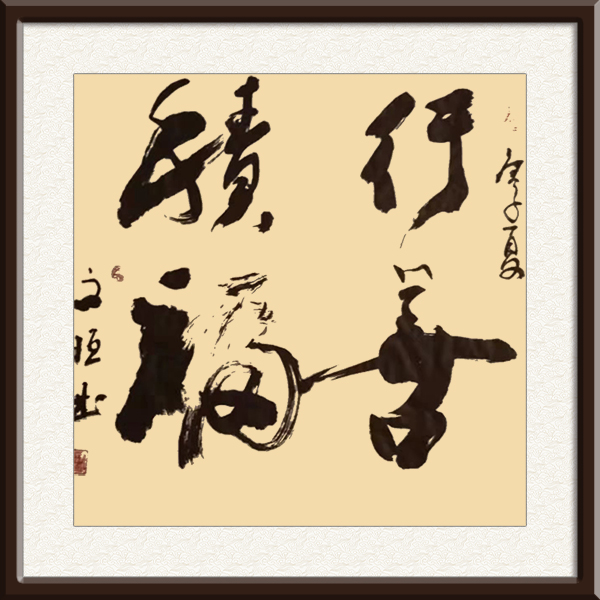 庚子夏
行善
積福
文恒书